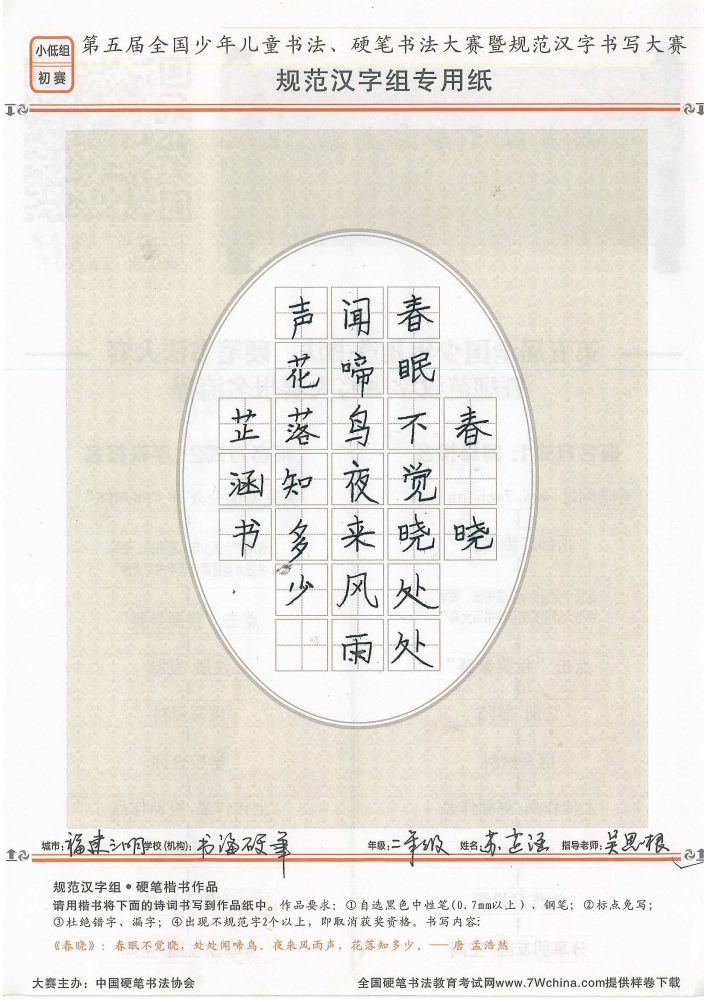 小低组
初赛
第五届全国少年儿童书法、硬笔书法大赛暨规范汉字书写大赛
规范汉字组专用纸
春晓
春眠不觉晓处处
闻啼鸟夜来风雨
声花落知多少
芷涵书
城市：福建三明 学校(机构)：书海硬笔 年级：二年级 姓名：苏芷涵 指导老师：吴思根
规范汉字组·硬笔楷书作品
请用楷书将下面的诗词书写到作品纸中。作品要求：①自选黑色中性笔(0.7mm以上)、钢笔；②标点免写；
③杜绝错字、漏字；④出现不规范字2个以上，即取消获奖资格。书写内容：
《春晓》：春眠不觉晓，处处闻啼鸟。夜来风雨声，花落知多少。——唐 孟浩然
大赛主办：中国硬笔书法协会
全国硬笔书法教育考试网www.7Wchina.com提供样卷下载